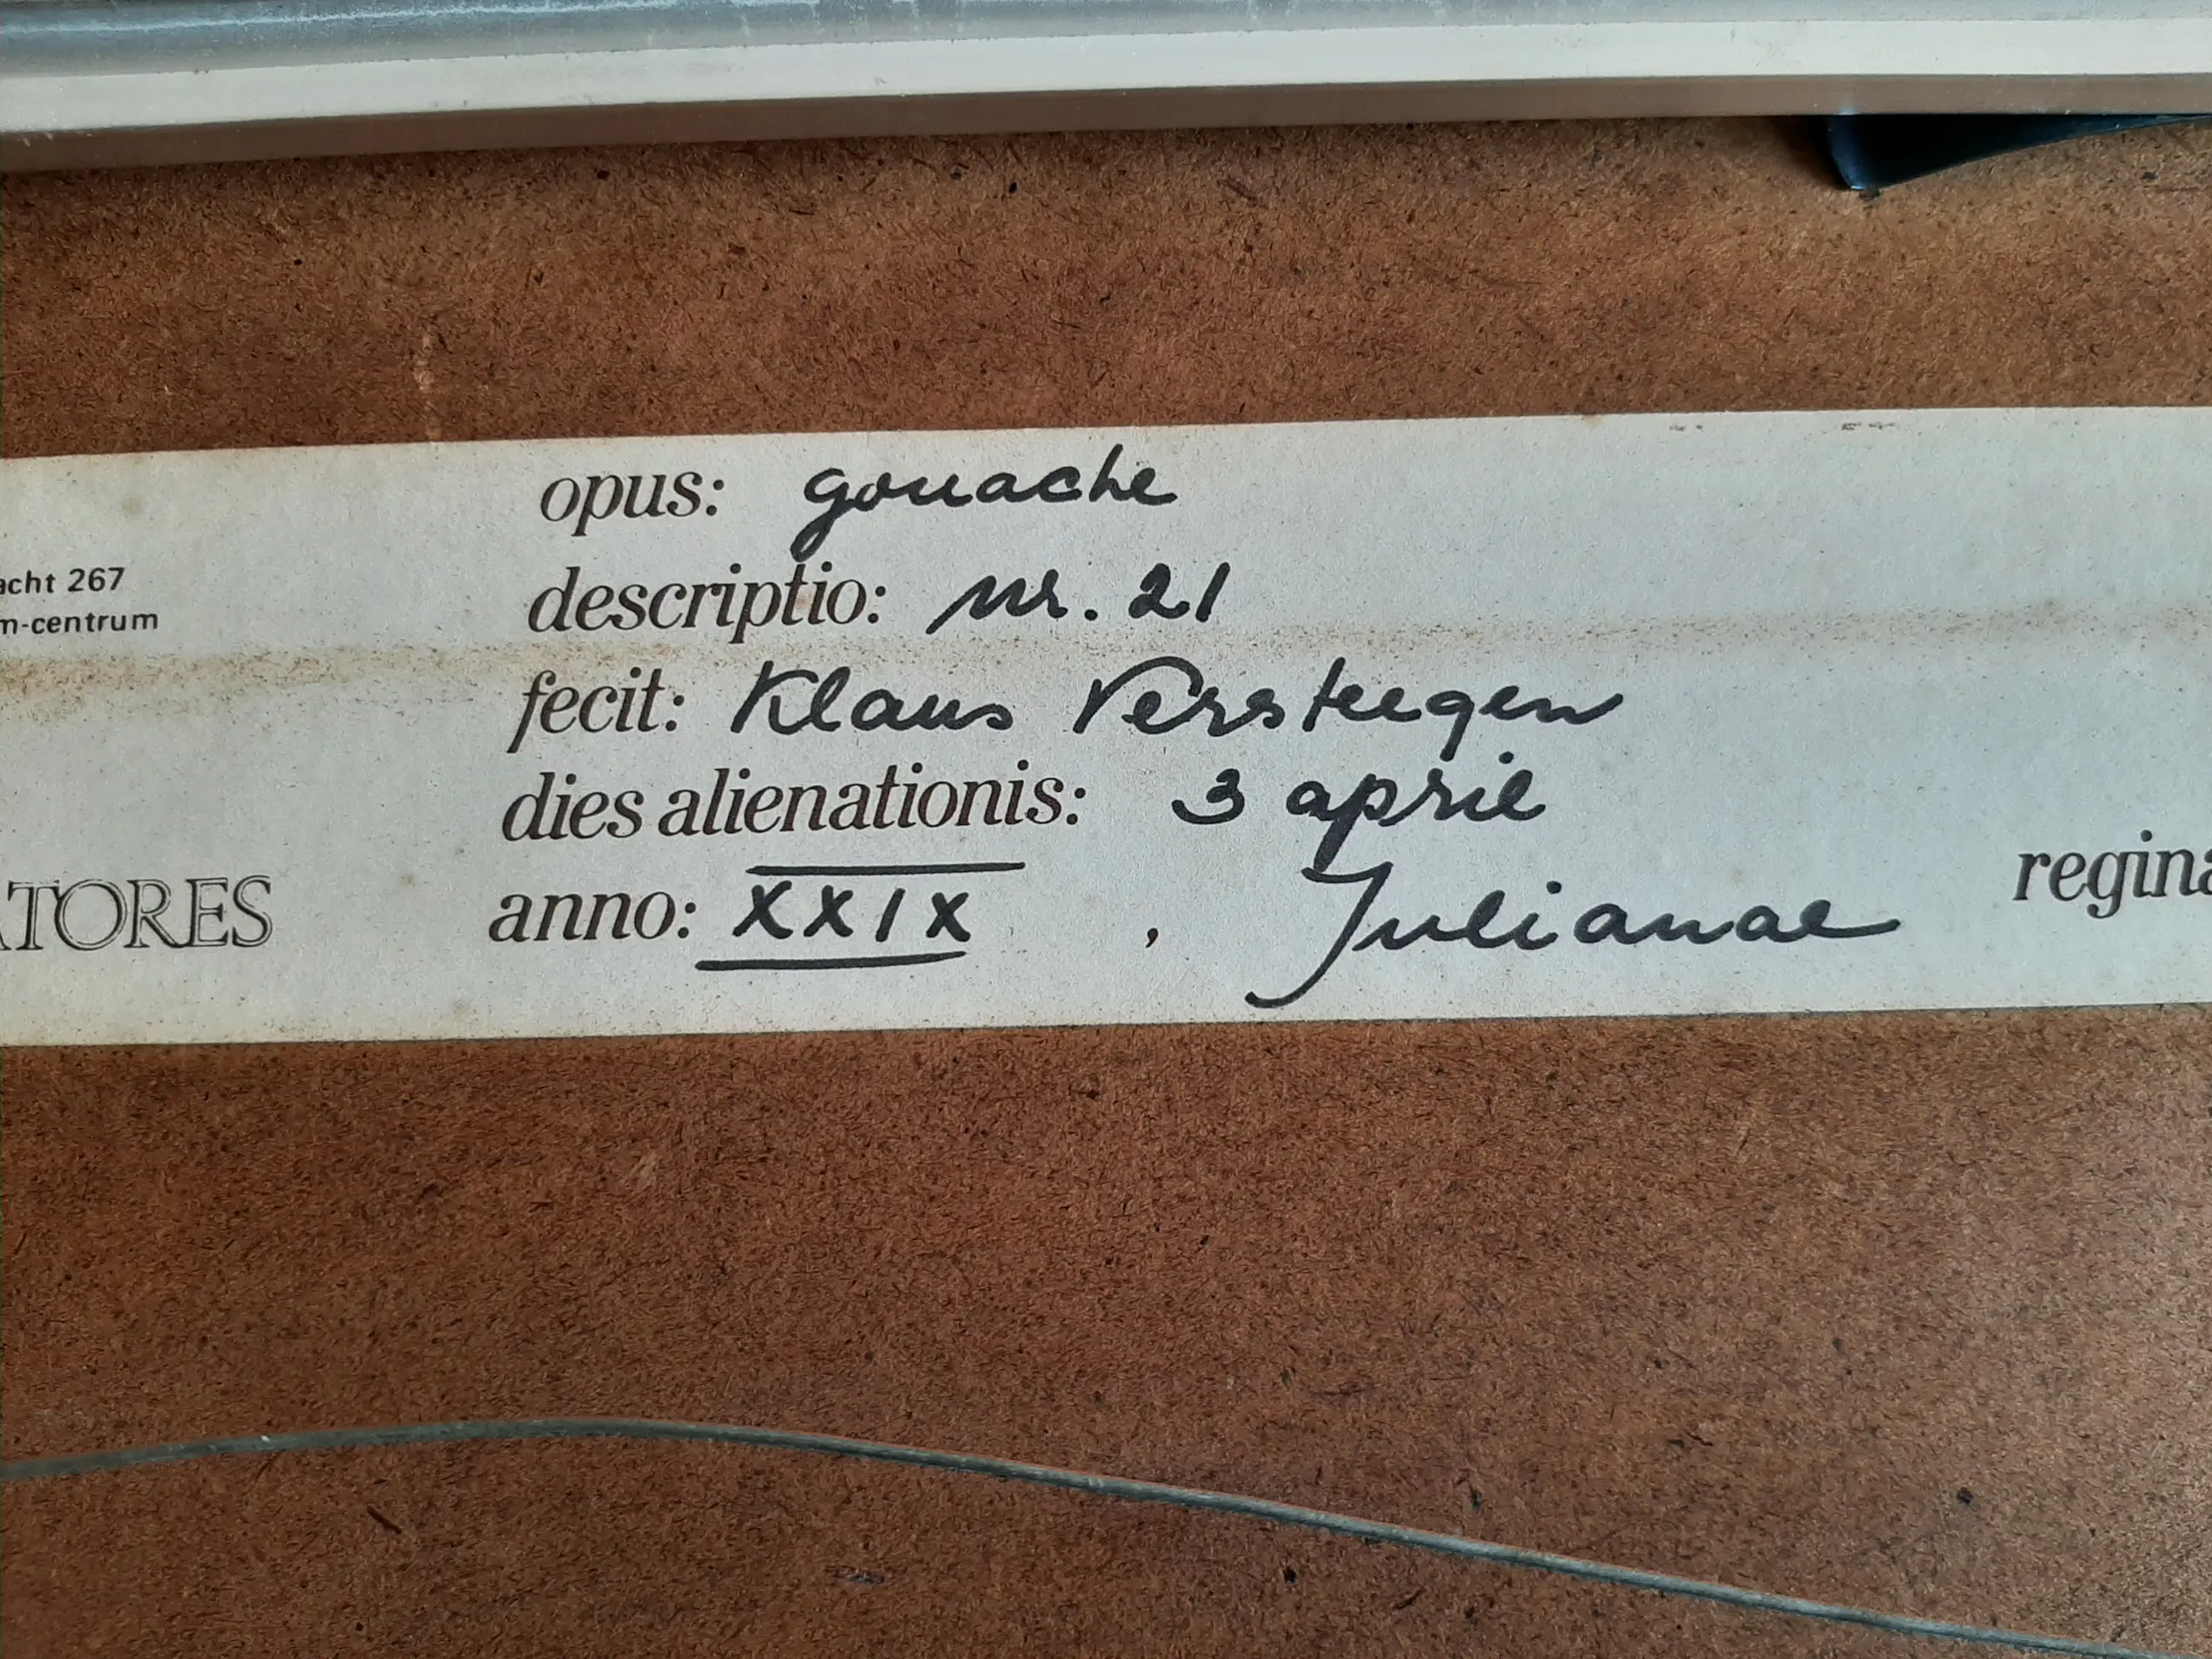 opus: gouache
acht 267
descriptio: nr. 21
m-centrum
fecit: Klaus Versteegen
dies alienationis: 3 april
ATORES
anno: XXIX , Julianae regina